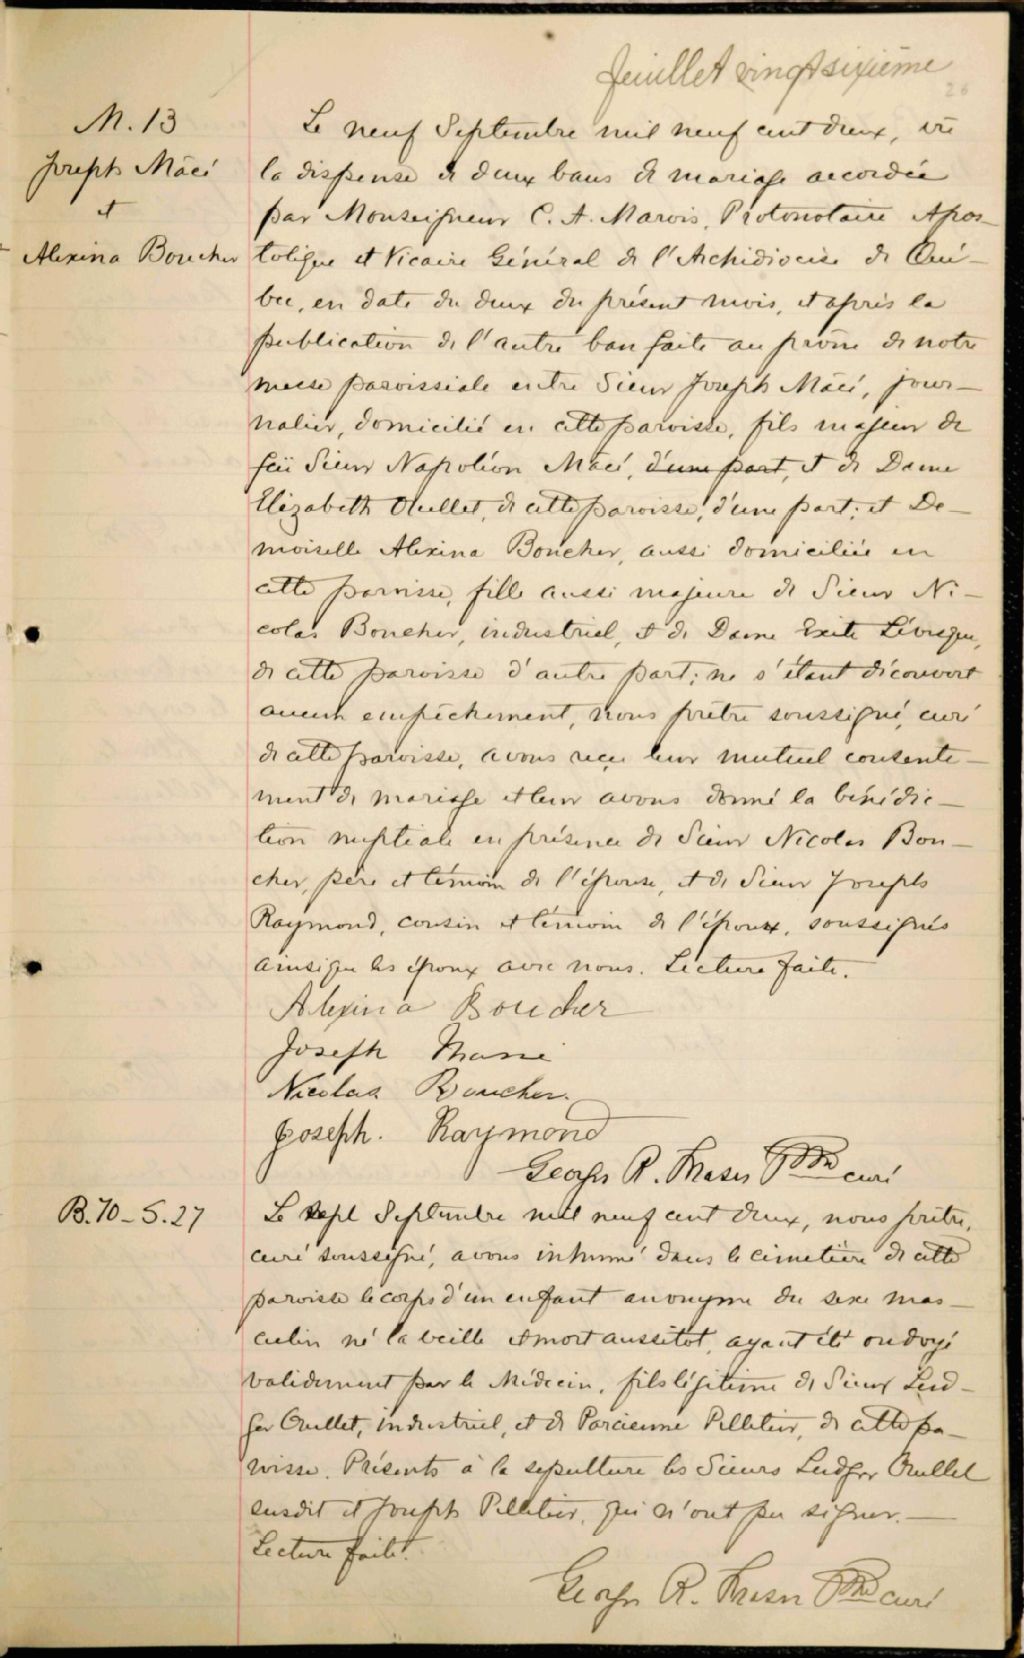 feuillet vingt sixième
26
M. 13
Joseph Mâcé
et
Alexina Boucher
Le neuf Septembre mil neuf cent deux, vu
la dispense de deux bans de mariage accordée
par Monseigneur C. A. Marois, Protonotaire Apos-
tolique et Vicaire Général de l'Archidiocèse de Qué-
bec, en date du deux du présent mois, et après la
publication de l'autre ban faite au prône de notre
messe paroissiale entre Sieur Joseph Mâcé, jour-
nalier, domicilié en cette paroisse, fils majeur de
feü Sieur Napoléon Mâcé, d'une part, et de Dame
Elizabeth Ouellet, de cette paroisse, d'une part; et De-
moiselle Alexina Boucher, aussi domiciliée en
cette paroisse, fille aussi majeure de Sieur Ni-
colas Boucher, industriel, et de Dame Exite Lévesque,
de cette paroisse d'autre part; ne s'étant découvert
aucun empêchement, nous prêtre soussigné, curé
de cette paroisse, avons reçu leur mutuel consente-
ment de mariage et leur avons donné la bénédic-
tion nuptiale en présence de Sieur Nicolas Bou-
cher, père et témoin de l'épouse, et de Sieur Joseph
Raymond, cousin et témoin de l'époux, soussignés
ainsi que les époux avec nous. Lecture faite.
Alexina Boucher
Joseph Massé
Nicolas Boucher.
Joseph. Raymond
Georges R. Fraser Ptre curé
B. 70 - S. 27
Le sept Septembre mil neuf cent deux, nous prêtre,
curé soussigné, avons inhumé dans le cimetière de cette
paroisse le corps d'un enfant anonyme du sexe mas-
culin né la veille et mort aussitôt, ayant été ondoyé
validement par le Médecin, fils légitime de Sieur Lud-
ger Ouellet, industriel, et de Parcienne Pelletier, de cette pa-
roisse. Présents à la sépulture les Sieurs Ludger Ouellet
susdit et Joseph Pelletier, qui n'ont pu signer.
Lecture faite.
Georges R. Fraser Ptre curé